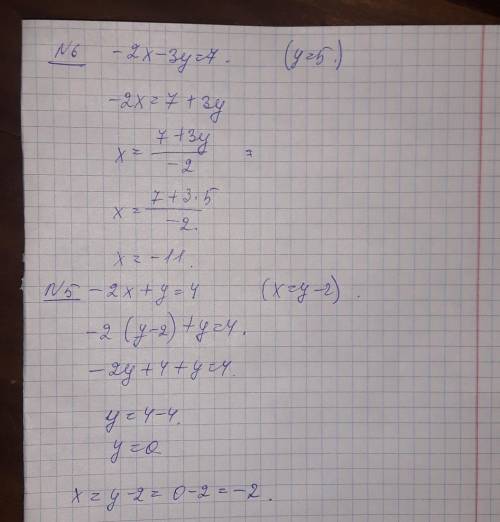 №6 -2x-3y=7. (y=5.)
-2x=7+3y
x= 7+3y / -2 =
x= 7+3·5 / -2.
x=-11.
№5 -2x+y=4 (x=y-2).
-2(y-2)+y=4.
-2y+4+y=4.
y=4-4.
y=0
x=y-2=0-2=-2.